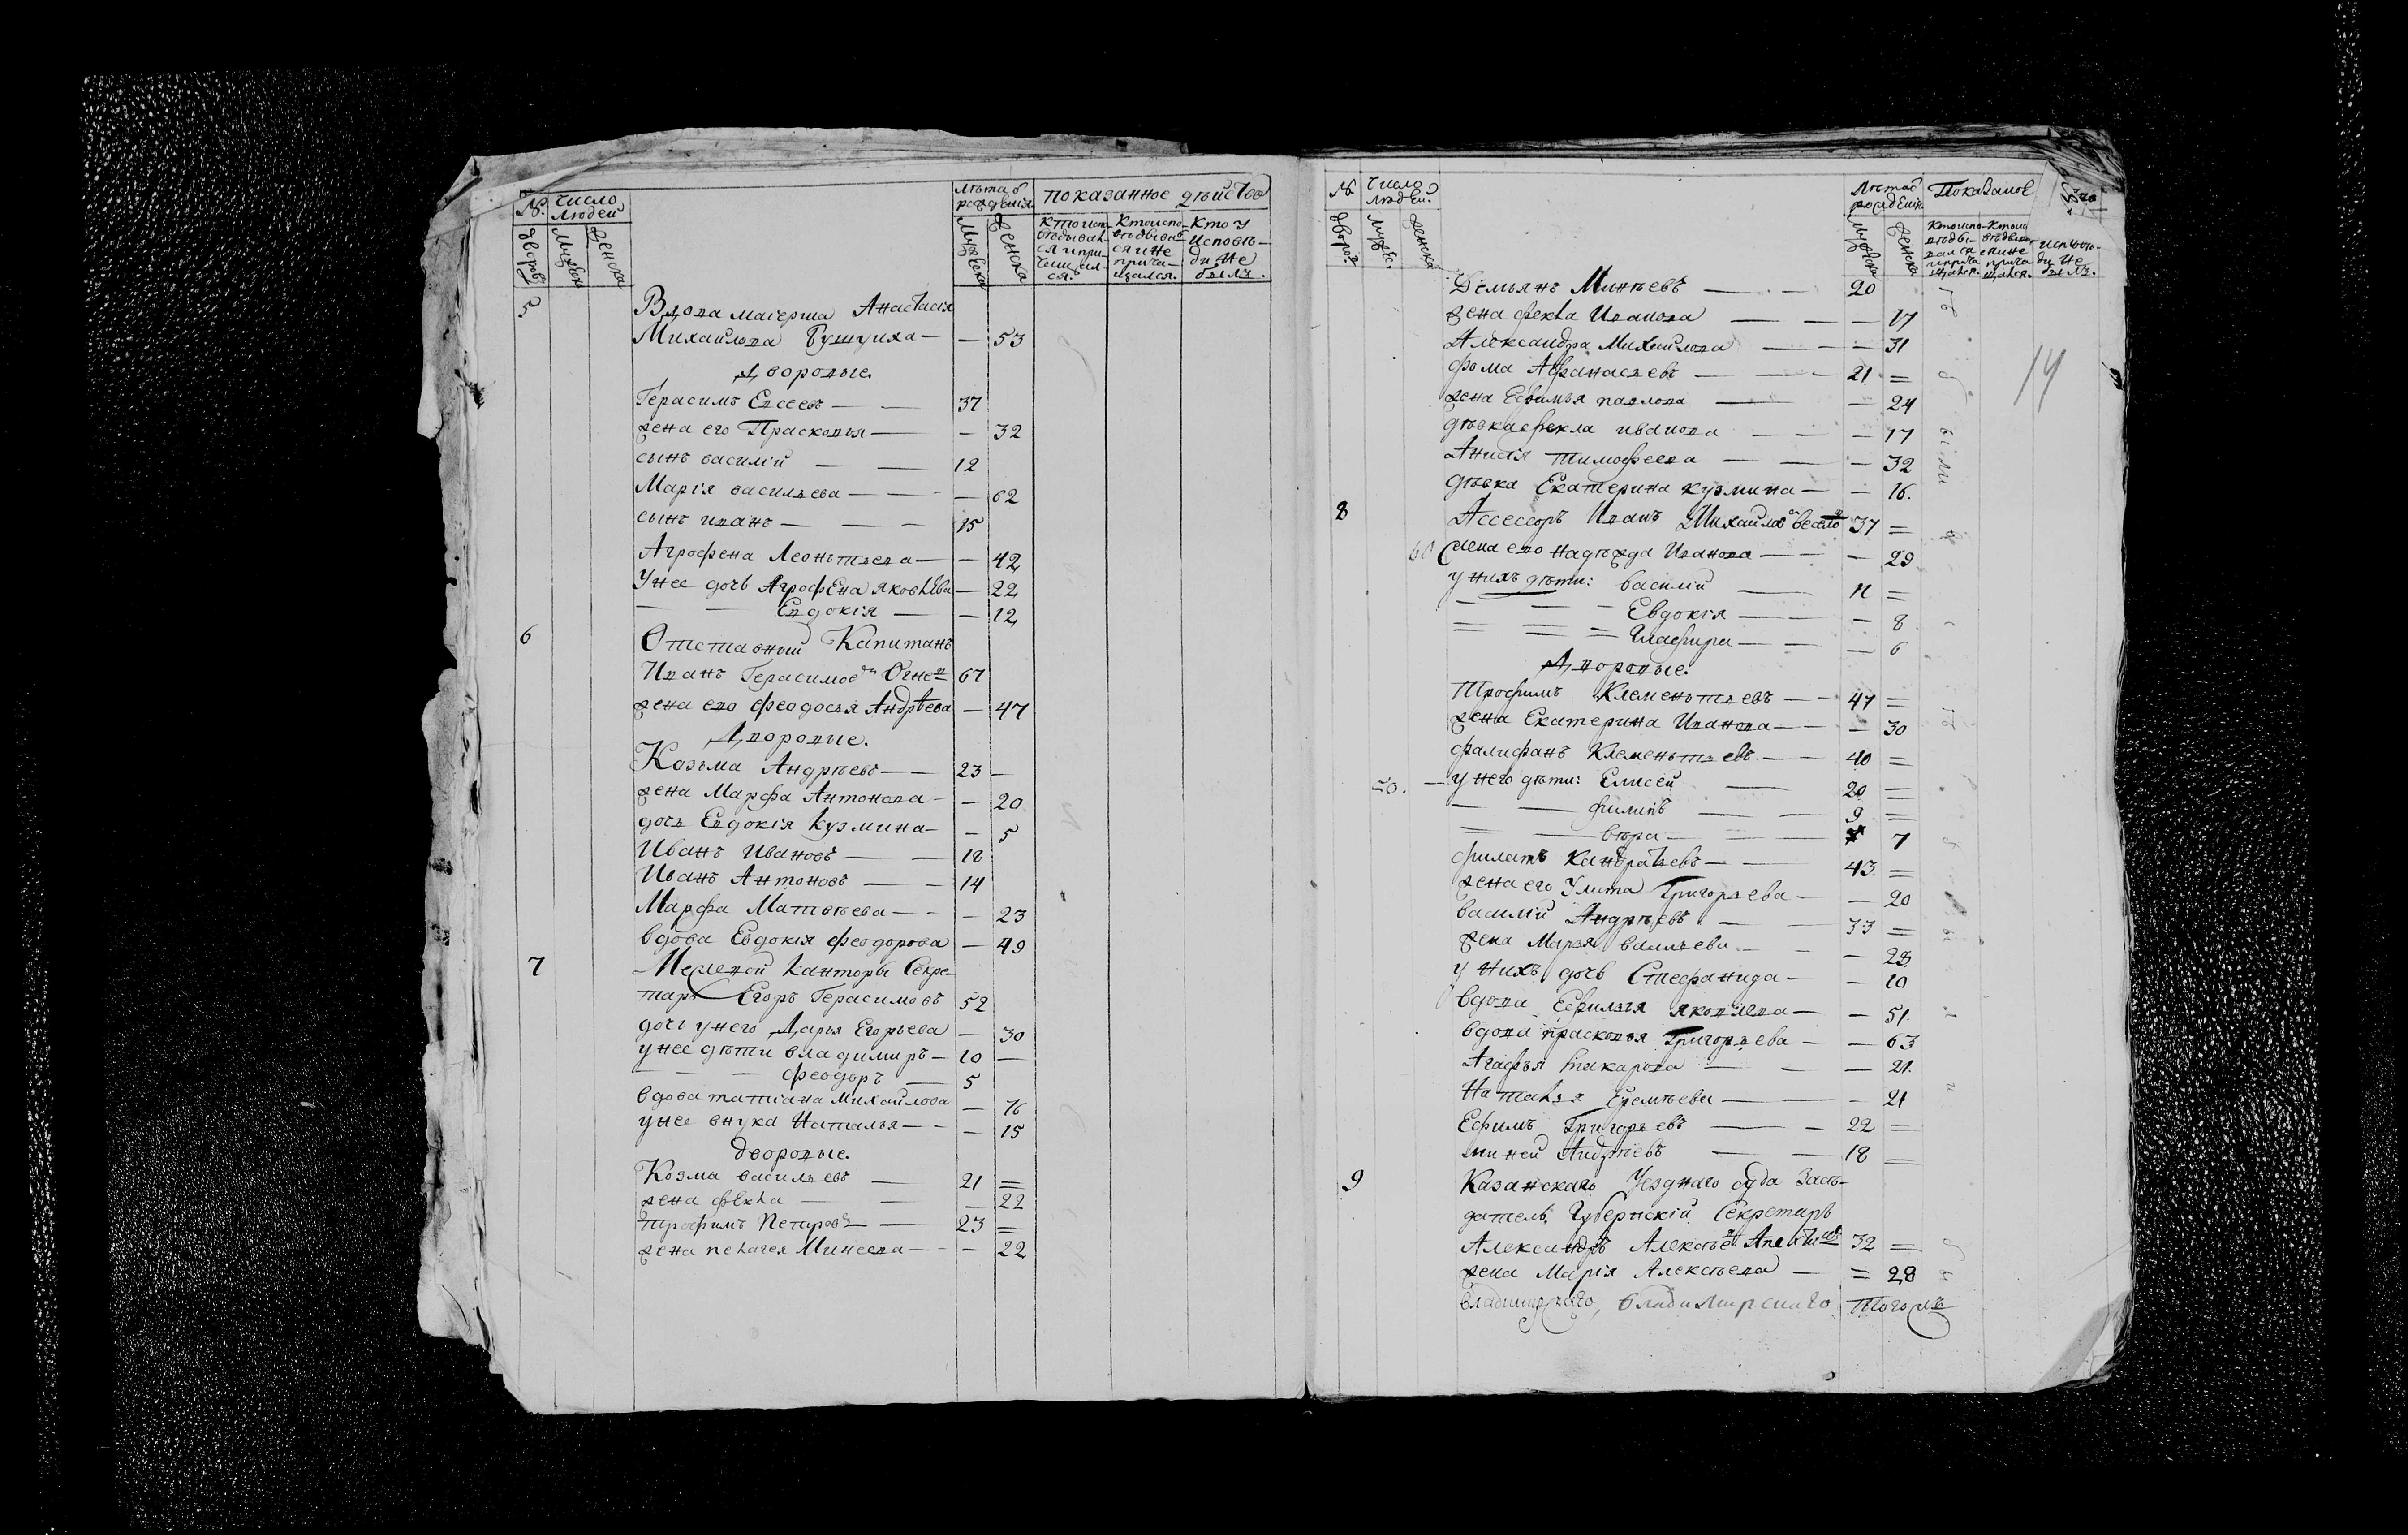 № Число людей
Дворов Мужеск Женска
Лѣта от рождения
Мужеска Женска
показанное дѣйство
Кто испо-
вѣдывал-
ся и при-
чащал-
ся.
Кто испо-
вѣдывал-
ся и не
прича-
щался.
Кто у
исповѣ-
ди не
былъ.
5 Вдова маіерша Анастасія
Михаилова — — 53
Дворовые.
Герасимъ Евсеевъ — — 37
жена его Прасковья — — 32
сынъ василій — — 12
Марія васильева — — — 62
сынъ иванъ — — — 15
Агрофена Леонтьева — — 42
У нее дочь Агрофена яковлева — 22
— — Евдокія — — 12
6 Отставный Капитанъ
Иванъ Герасимов 67
жена его феодосья Андрѣева — 47
Дворовые.
Козьма Андрѣевъ — — 23 —
жена Марфа Антонова — — 20
дочь Евдокія Кузмина — — 5
Иванъ Ивановъ — — 18
Иванъ Антоновъ — — 14
Марфа Матвѣева — — — 23
вдова Евдокія феодорова — 49
7 Межевой Канторы Секре-
тарь Егоръ Герасимовъ 52
дочь у него Дарья Егорьева — 30
у нее дѣти владимиръ — 10 —
— — — феодоръ — 5
вдова татіана Михаилова — 76
у нее внука Наталья — — — 15
Дворовые.
Козма васильевъ — 21 =
жена фекла — — — 22
трофимъ Петровъ — — 23 =
жена пелагея Минеева — — — 22
№ Число людей.
Дворов. Мужес. Женска
Лѣта от рождения
Мужеска Женска
Показанное
Демьянъ Минѣевъ — — 20
жена фекла Иванова — — — 17
Александра Михаилова — — — 31
фома Афанасьевъ — — 21 =
жена Ефимья павлова — — 24
дѣвка фекла иванова — — — 17
Анисія тимофеева — — — 32
дѣвка Екатерина кузмина — — 16.
8 Ассессоръ Иванъ Михаилов 37 =
жена его надежда Иванова — — — 29
у нихъ дѣти: василій — 11 =
— — — Евдокія — — — 8
= = = Глафира — — — 6
Дворовые.
Трофимъ Клементьевъ — — 47 =
жена Екатерина Иванова — — — 30
Клементьевъ — — 40 =
у него дѣти: Елисей — 20 =
— — филипъ — — 9 =
= — вѣра — — — 7
филатъ Кандратьевъ — — 43 =
жена его Улита Григорьева — — 20
василій Андрѣевъ — — 33 =
жена Марья васильева — — — 29
у нихъ дочь Стефанида — — 10
вдова Ефимья яковлева — — 51.
вдова прасковья Григорьева — — 63
Агафья макарова — — — 21.
Наталья — — 21
Ефимъ Григорьевъ — — 22 =
миней Андрѣевъ — — 18 =
9 Казанскаго Уезднаго суда Засѣ-
датель Губернскій Секретарь
Александръ Алексѣев 32 =
жена Марія Алексѣева — = 28
Владимирскаго, владимирскаго
14